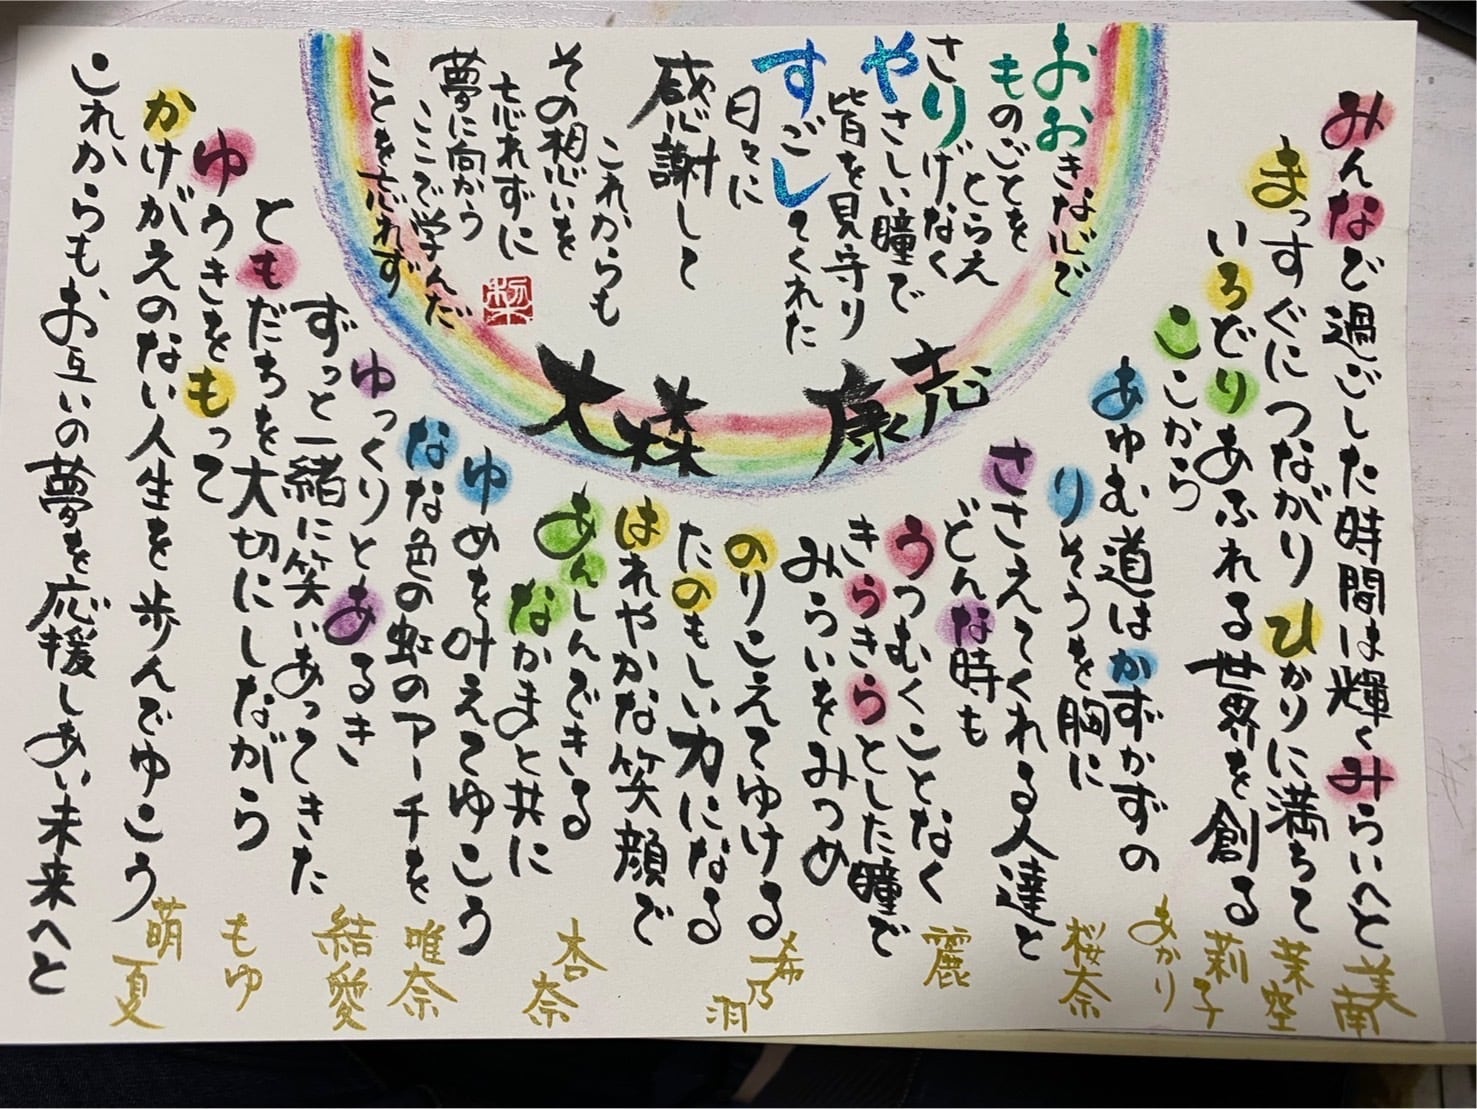 おおきな心で
ものごとを
とらえ
さりげなく
やさしい瞳で
皆を見守り
すごしてくれた
日々に
感謝して
これからも
その想いを
忘れずに
夢に向かう
ここで学んだ
ことを忘れず
大森 康志
みんなで過ごした時間は輝くみらいへと
まっすぐにつながり ひかりに満ちて
いろどりあふれる世界を創る
ここから
あゆむ道はかずかずの
りそうを胸に
ささえてくれる人達と
どんな時も
うつむくことなく
きらきらとした瞳で
みらいをみつめ
のりこえてゆける
たのもしい力になる
はれやかな笑顔で
あんしんできる
なかまと共に
ゆめを叶えてゆこう
なな色の虹のアーチを
ゆっくりとあるき
ずっと一緒に笑いあってきた
ともだちを大切にしながら
ゆうきをもって
かけがえのない人生を歩んでゆこう
これからもお互いの夢を応援しあい未来へと
美南
茉空
莉子
あかり
桜奈
麗
希乃羽
杏奈
唯奈
結愛
もゆ
萌夏